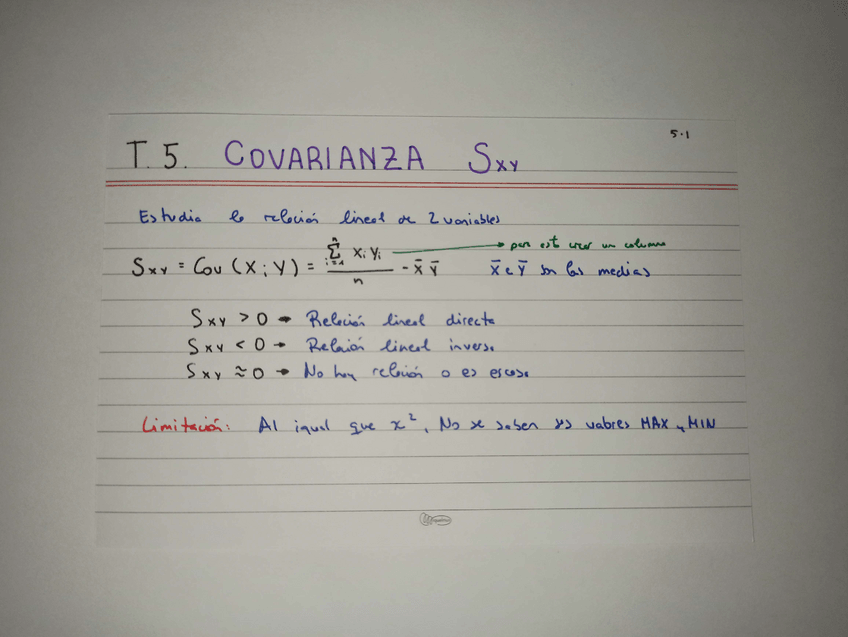 5.1
T.5. COVARIANZA Sxy
Estudia la relación lineal de 2 variables
Sxy = Cov (X;Y) = \frac{\sum_{i=1}^{n} xi yi}{n} - x̄ ȳ → para esto crear un columna
x̄ e ȳ son las medias
Sxy > 0 → Relación lineal directa
Sxy < 0 → Relación lineal inversa
Sxy ≈ 0 → No hay relación o es escasa
Limitación: Al igual que x², No se saben sus valores MAX y MIN